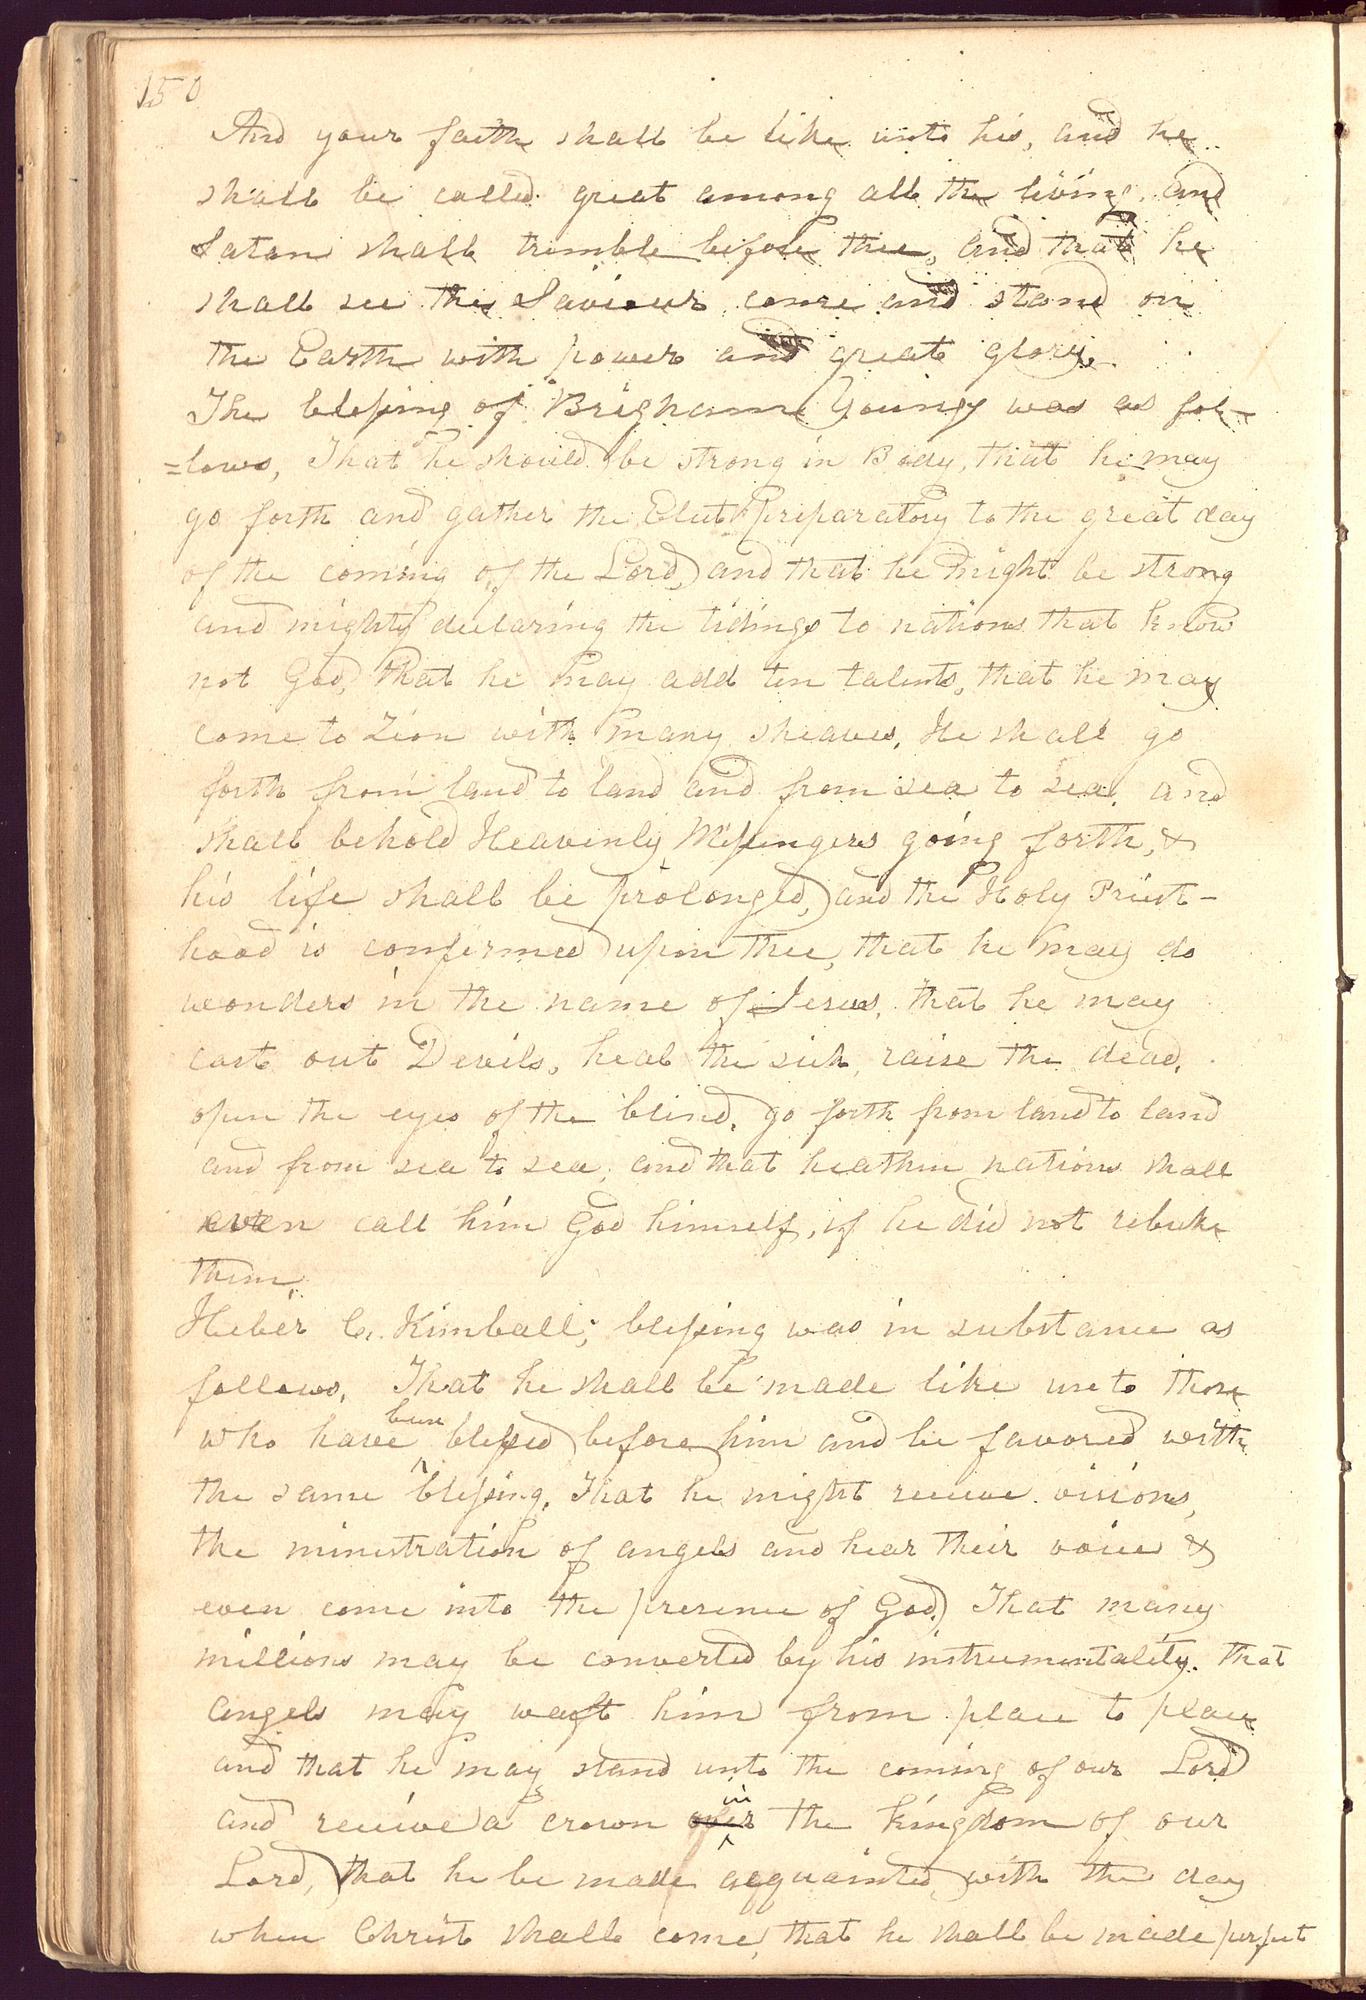 150
And your faith shall be like unto his, and he
shall be called great among all the living, and
Satan shall trimble before thee, and that he
shall see the Saviour come and stand on
the Earth with power and great glory.
The blessing of Brigham Young was as fol-
=lows, That he should be strong in Body, that he may
go forth and gather the Elect preparatory to the great day
of the coming of the Lord, and that he might be strong
and mighty declaring the tidings to nations that know
not God, that he may add ten talents, that he may
come to Zion with many sheaves. He shall go
forth from land to land and from sea to sea, and
shall behold Heavenly Messengers going forth, &
his life shall be prolonged, and the Holy Priest-
hood is confirmed upon thee, that he may do
wonders in the name of Jesus, that he may
cast out Devils, heal the sick, raise the dead,
open the eyes of the blind, go forth from land to land
and from sea to sea, and that heathen nations shall
even call him God himself, if he did not rebuke
them.
Heber C. Kimball; blessing was in substance as
follows. That he shall be made like unto those
who have been blessed before him and be favored with
the same blessing. That he might receive visions,
the ministration of angels and hear their voice &
even come into the presence of God, That many
millions may be converted by his instrumentality. That
angels may waft him from place to place
and that he may stand unto the coming of our Lord
and receive a crown over in the kingdom of our
Lord, that he be made acquainted with the day
when Christ shall come, that he shall be made perfect